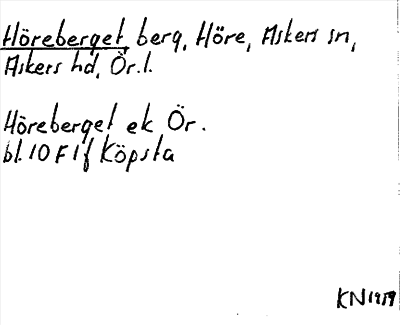 Höreberget berg, Höre, Askers sn,
Askers hd, Ör.l.
Höreberget ek Ör.
bl. 10 F 1 f Köpsta
KN